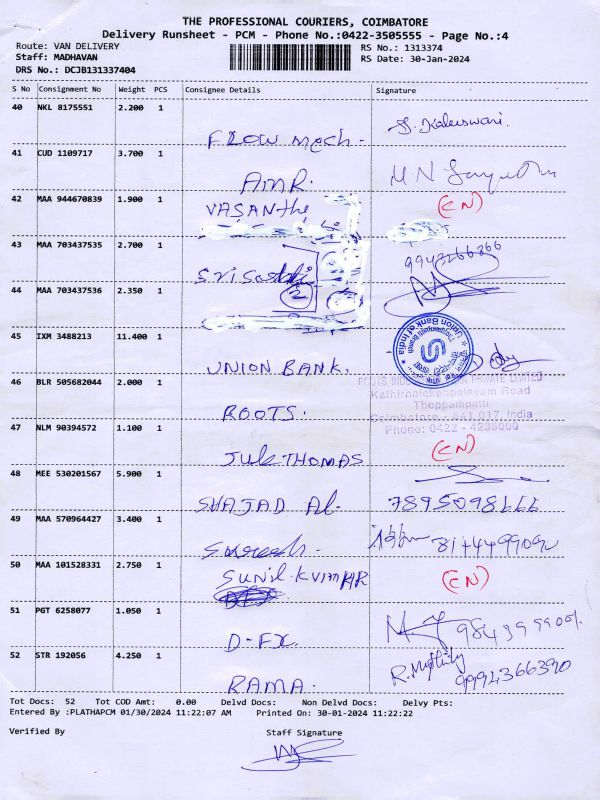 THE PROFESSIONAL COURIERS, COIMBATORE
Delivery Runsheet - PCM - Phone No.:0422-3505555 - Page No.:4
Route: VAN DELIVERY RS No.: 1313374
Staff: MADHAVAN RS Date: 30-Jan-2024
DRS No.: DCJB131337404
S No Consignment No Weight PCS Consignee Details Signature
40 NKL 8175551 2.200 1
FLOW Mech. S. Kaleeswari.
41 CUD 1109717 3.700 1
AMR.
42 MAA 944670839 1.900 1
VASANthe (EN)
43 MAA 703437535 2.700 1
Sri Sakthi 9943266366
2
44 MAA 703437536 2.350 1
45 IXM 3488213 11.400 1
UNION BANK.
Union Bank of India
Thoppampatti Branch
46 BLR 505682044 2.000 1
ROOTS.
PRIVATE LIMITED
Kathirnaickenpalayam Road
Thoppampatti
Coimbatore - 641 017, India
Phone: 0422 - 4235000
47 NLM 90394572 1.100 1
THOMAS (EN)
48 MEE 530201567 5.900 1
SHAJAD Al. 7895098666
49 MAA 570964427 3.400 1
Suresh.
50 MAA 101528331 2.750 1
SUNIL.KVIMAR (EN)
51 PGT 6258077 1.050 1
D-FX.
52 STR 192056 4.250 1
RAMA. 9994366390
Tot Docs: 52 Tot COD Amt: 0.00 Delvd Docs: Non Delvd Docs: Delvy Pts:
Entered By :PLATHAPCM 01/30/2024 11:22:07 AM Printed On: 30-01-2024 11:22:22
Verified By Staff Signature